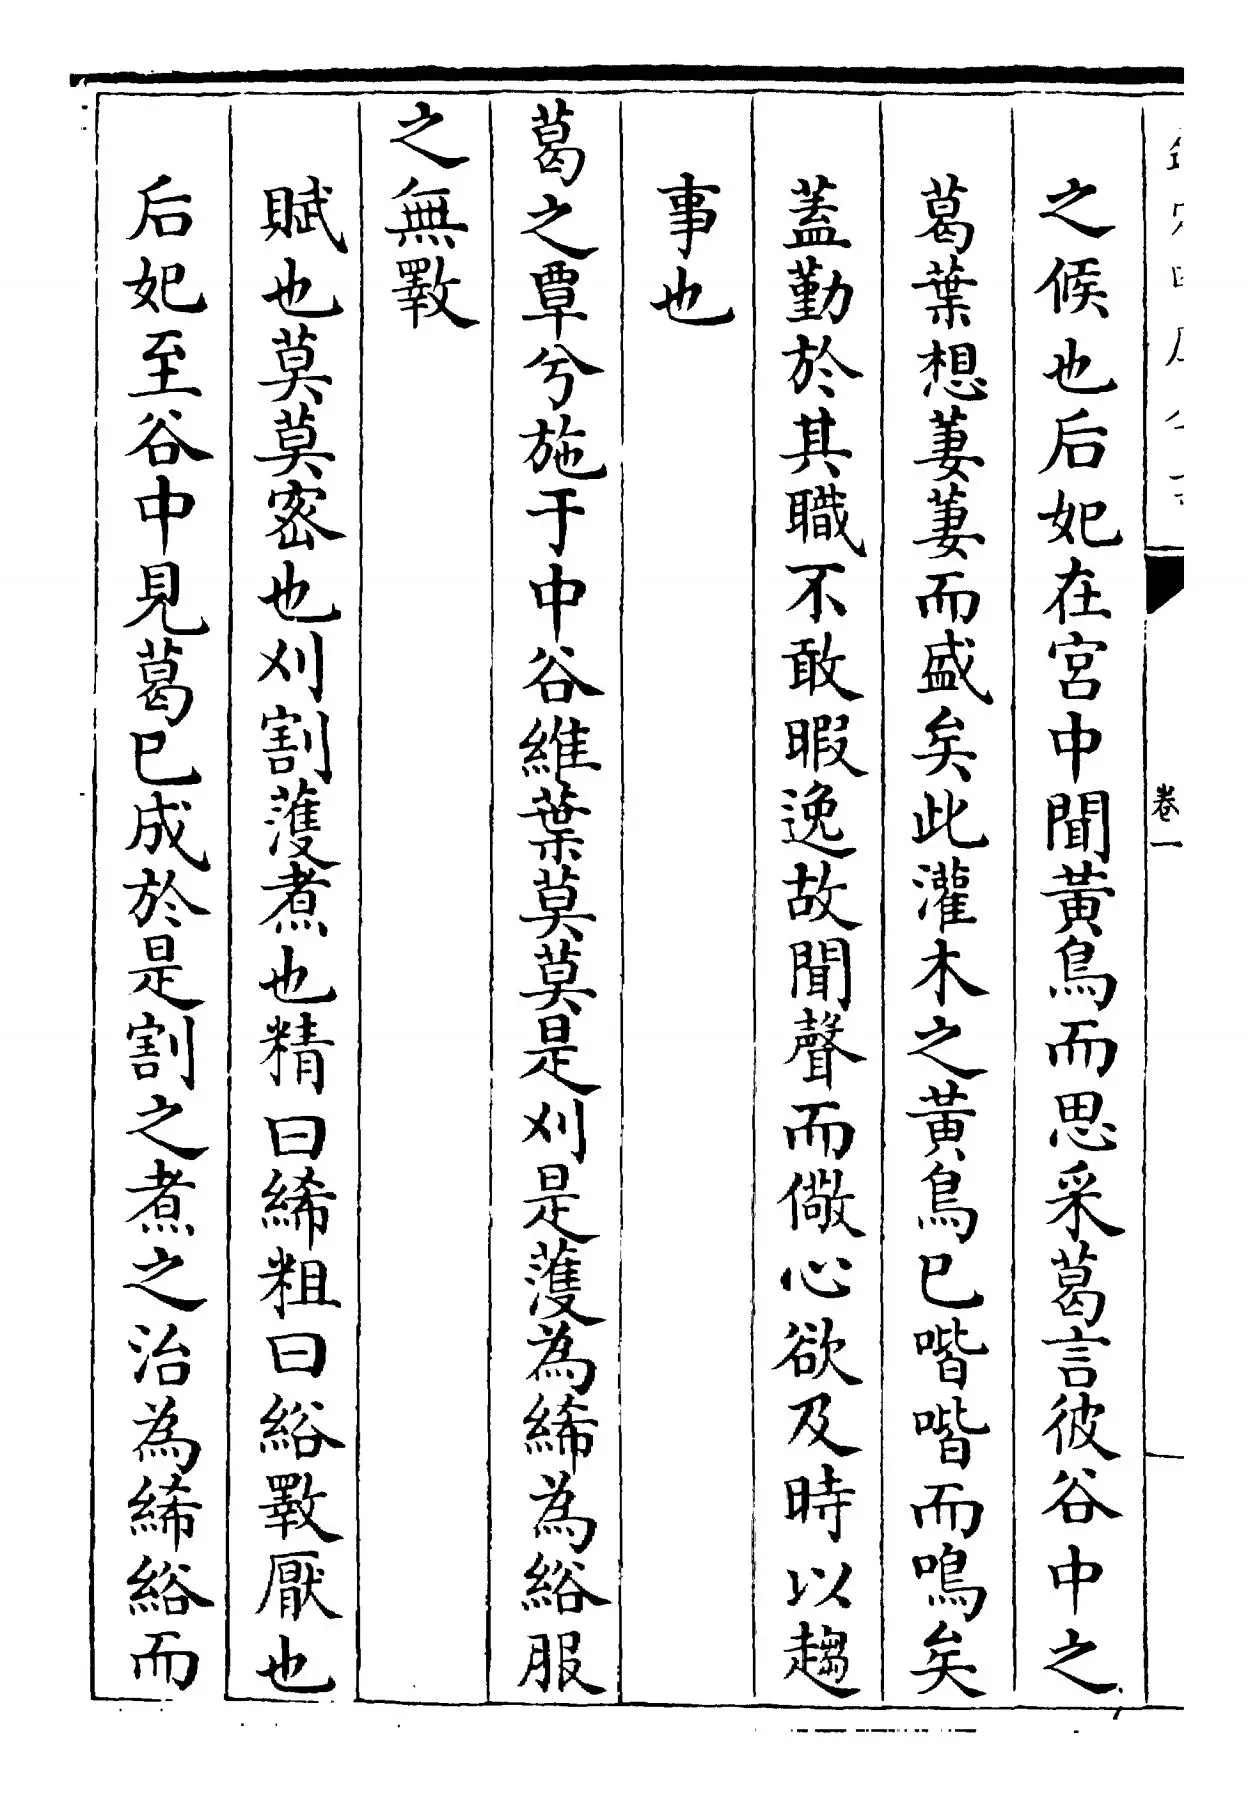 卷一
之候也后妃在宮中聞黃鳥而思采葛言彼谷中之
葛葉想萋萋而盛矣此灌木之黃鳥已喈喈而鳴矣
蓋勤於其職不敢暇逸故聞聲而儆心欲及時以趨
事也
葛之覃兮施于中谷維葉莫莫是刈是濩為絺為綌服
之無斁
賦也莫莫宻也刈割濩煮也精曰絺粗曰綌斁厭也
后妃至谷中見葛已成於是割之煮之治為絺綌而